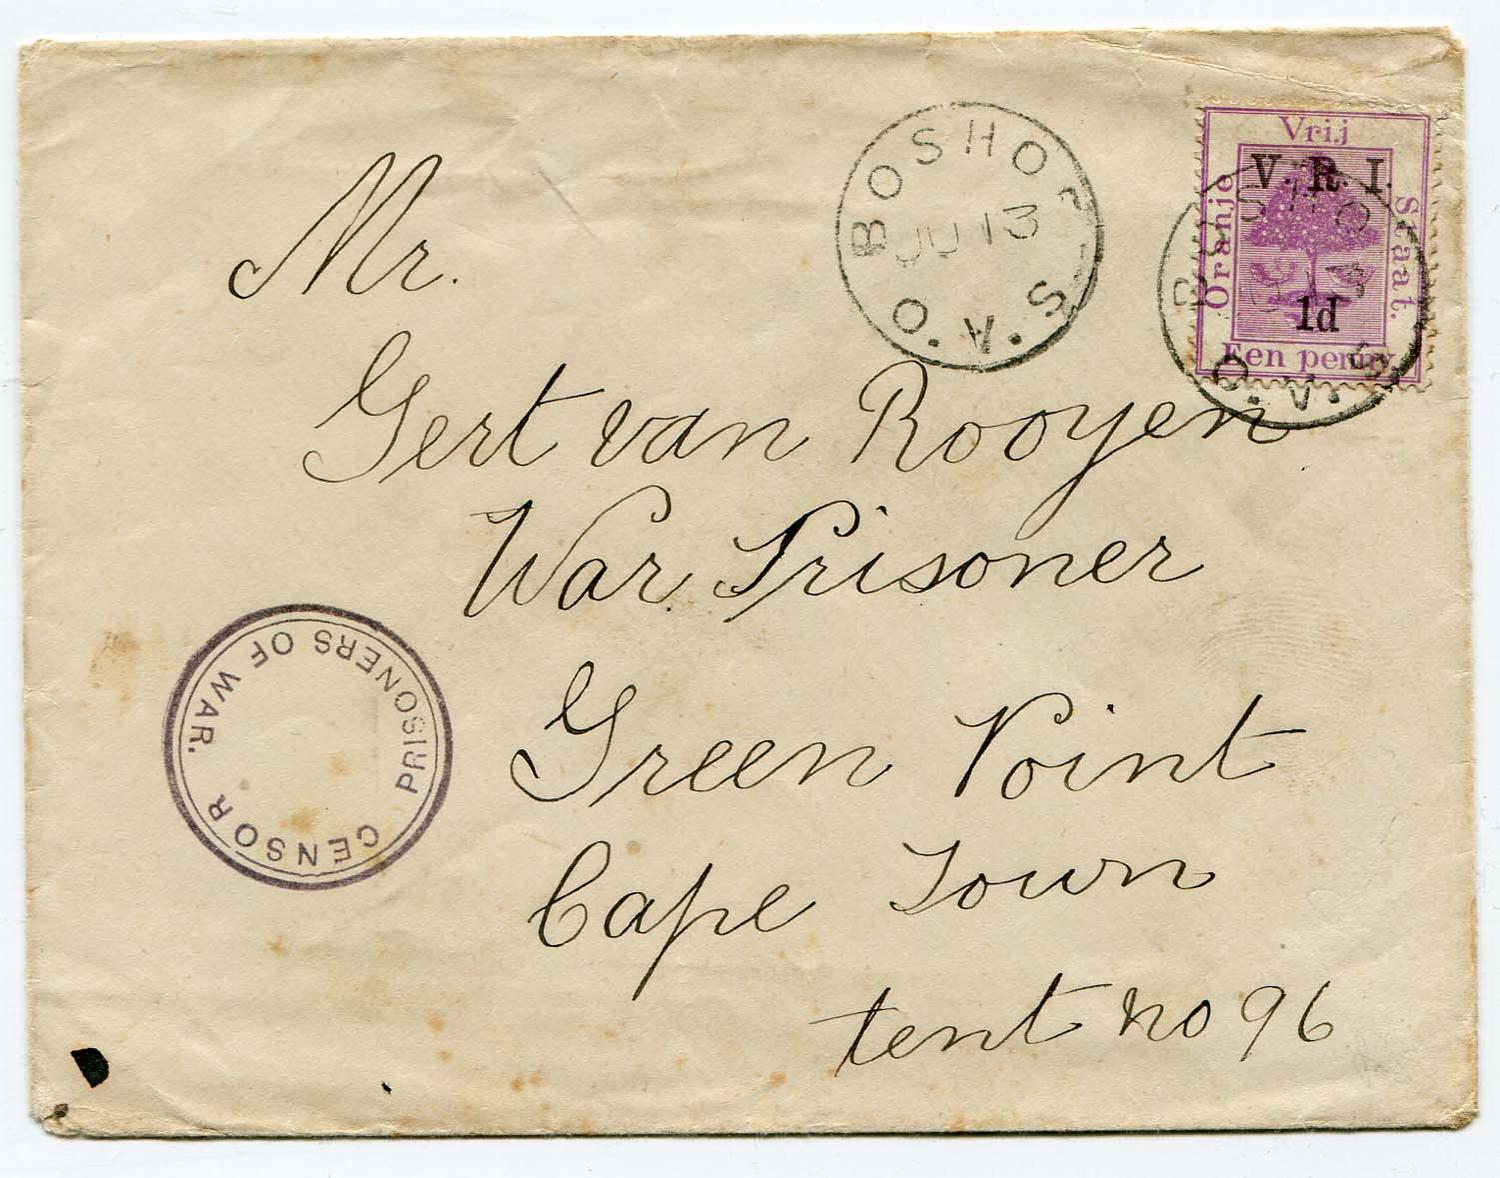 BOSHOF
JU 13
O.V.S.
Vrij
V.R.I.
Oranje
Staat.
1d
Een penny
BOSHO
13
O.V.S
Mr.
Gert van Rooyen
War Prisoner
Green Point
Cape Town
tent no 96
PRISONERS OF WAR.
CENSOR